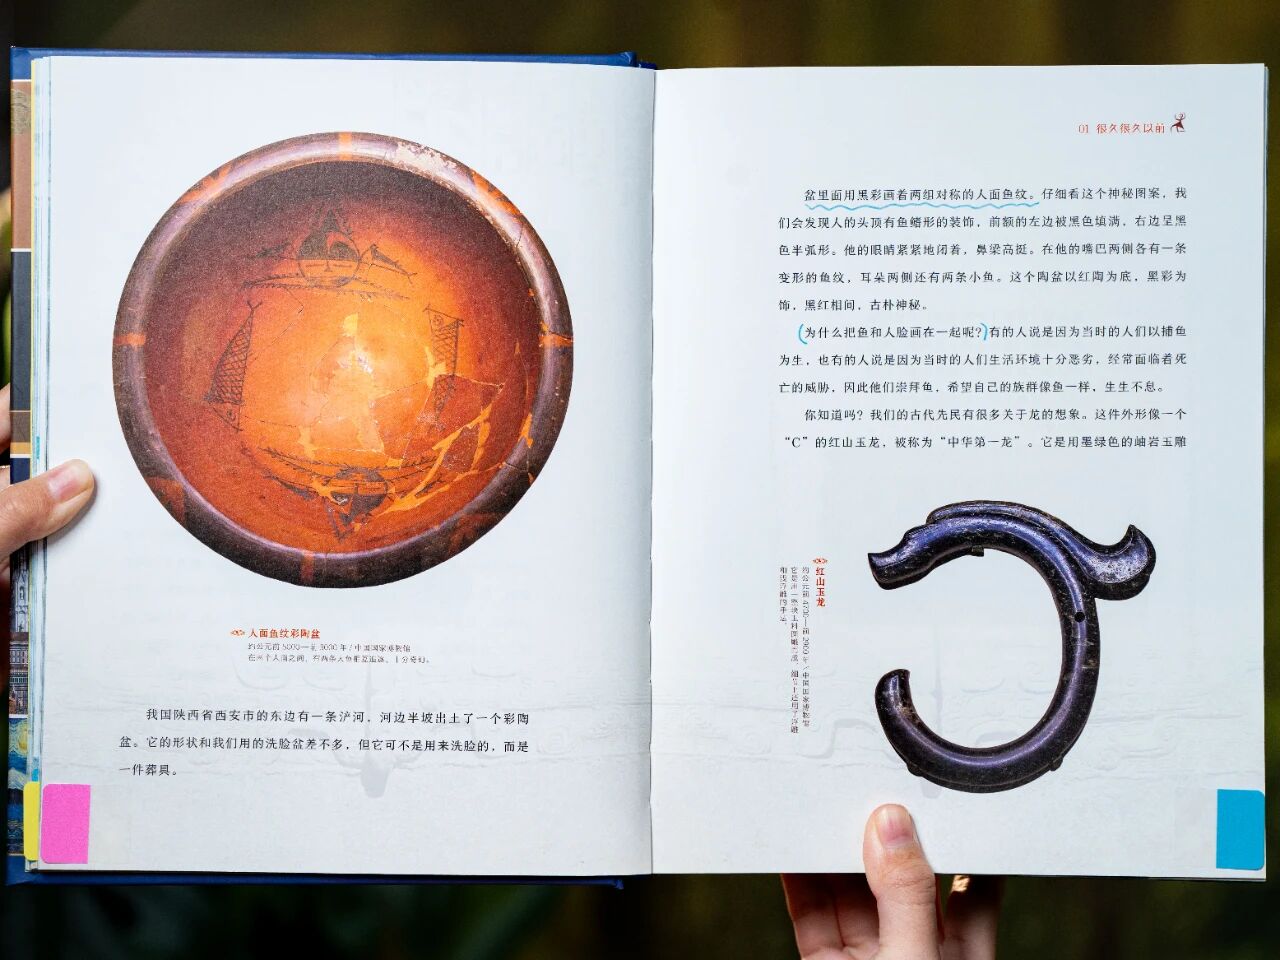 人面鱼纹彩陶盆
约公元前 5000—前 3000 年 / 中国国家博物馆
在两个人面之间，有两条大鱼相互追逐，十分奇幻。
我国陕西省西安市的东边有一条浐河，河边半坡出土了一个彩陶
盆。它的形状和我们用的洗脸盆差不多，但它可不是用来洗脸的，而是
一件葬具。
01 很久很久以前
盆里面用黑彩画着两组对称的人面鱼纹。仔细看这个神秘图案，我
们会发现人的头顶有鱼鳍形的装饰，前额的左边被黑色填满，右边呈黑
色半弧形。他的眼睛紧紧地闭着，鼻梁高挺。在他的嘴巴两侧各有一条
变形的鱼纹，耳朵两侧还有两条小鱼。这个陶盆以红陶为底，黑彩为
饰，黑红相间，古朴神秘。
为什么把鱼和人脸画在一起呢？有的人说是因为当时的人们以捕鱼
为生，也有的人说是因为当时的人们生活环境十分恶劣，经常面临着死
亡的威胁，因此他们崇拜鱼，希望自己的族群像鱼一样，生生不息。
你知道吗？我们的古代先民有很多关于龙的想象。这件外形像一个
“C”的红山玉龙，被称为“中华第一龙”。它是用墨绿色的岫岩玉雕
红山玉龙
约公元前 4700—前 2900 年 / 中国国家博物馆
它是由一整块玉料圆雕而成，细节上还用了浮雕
和浅浮雕的手法。